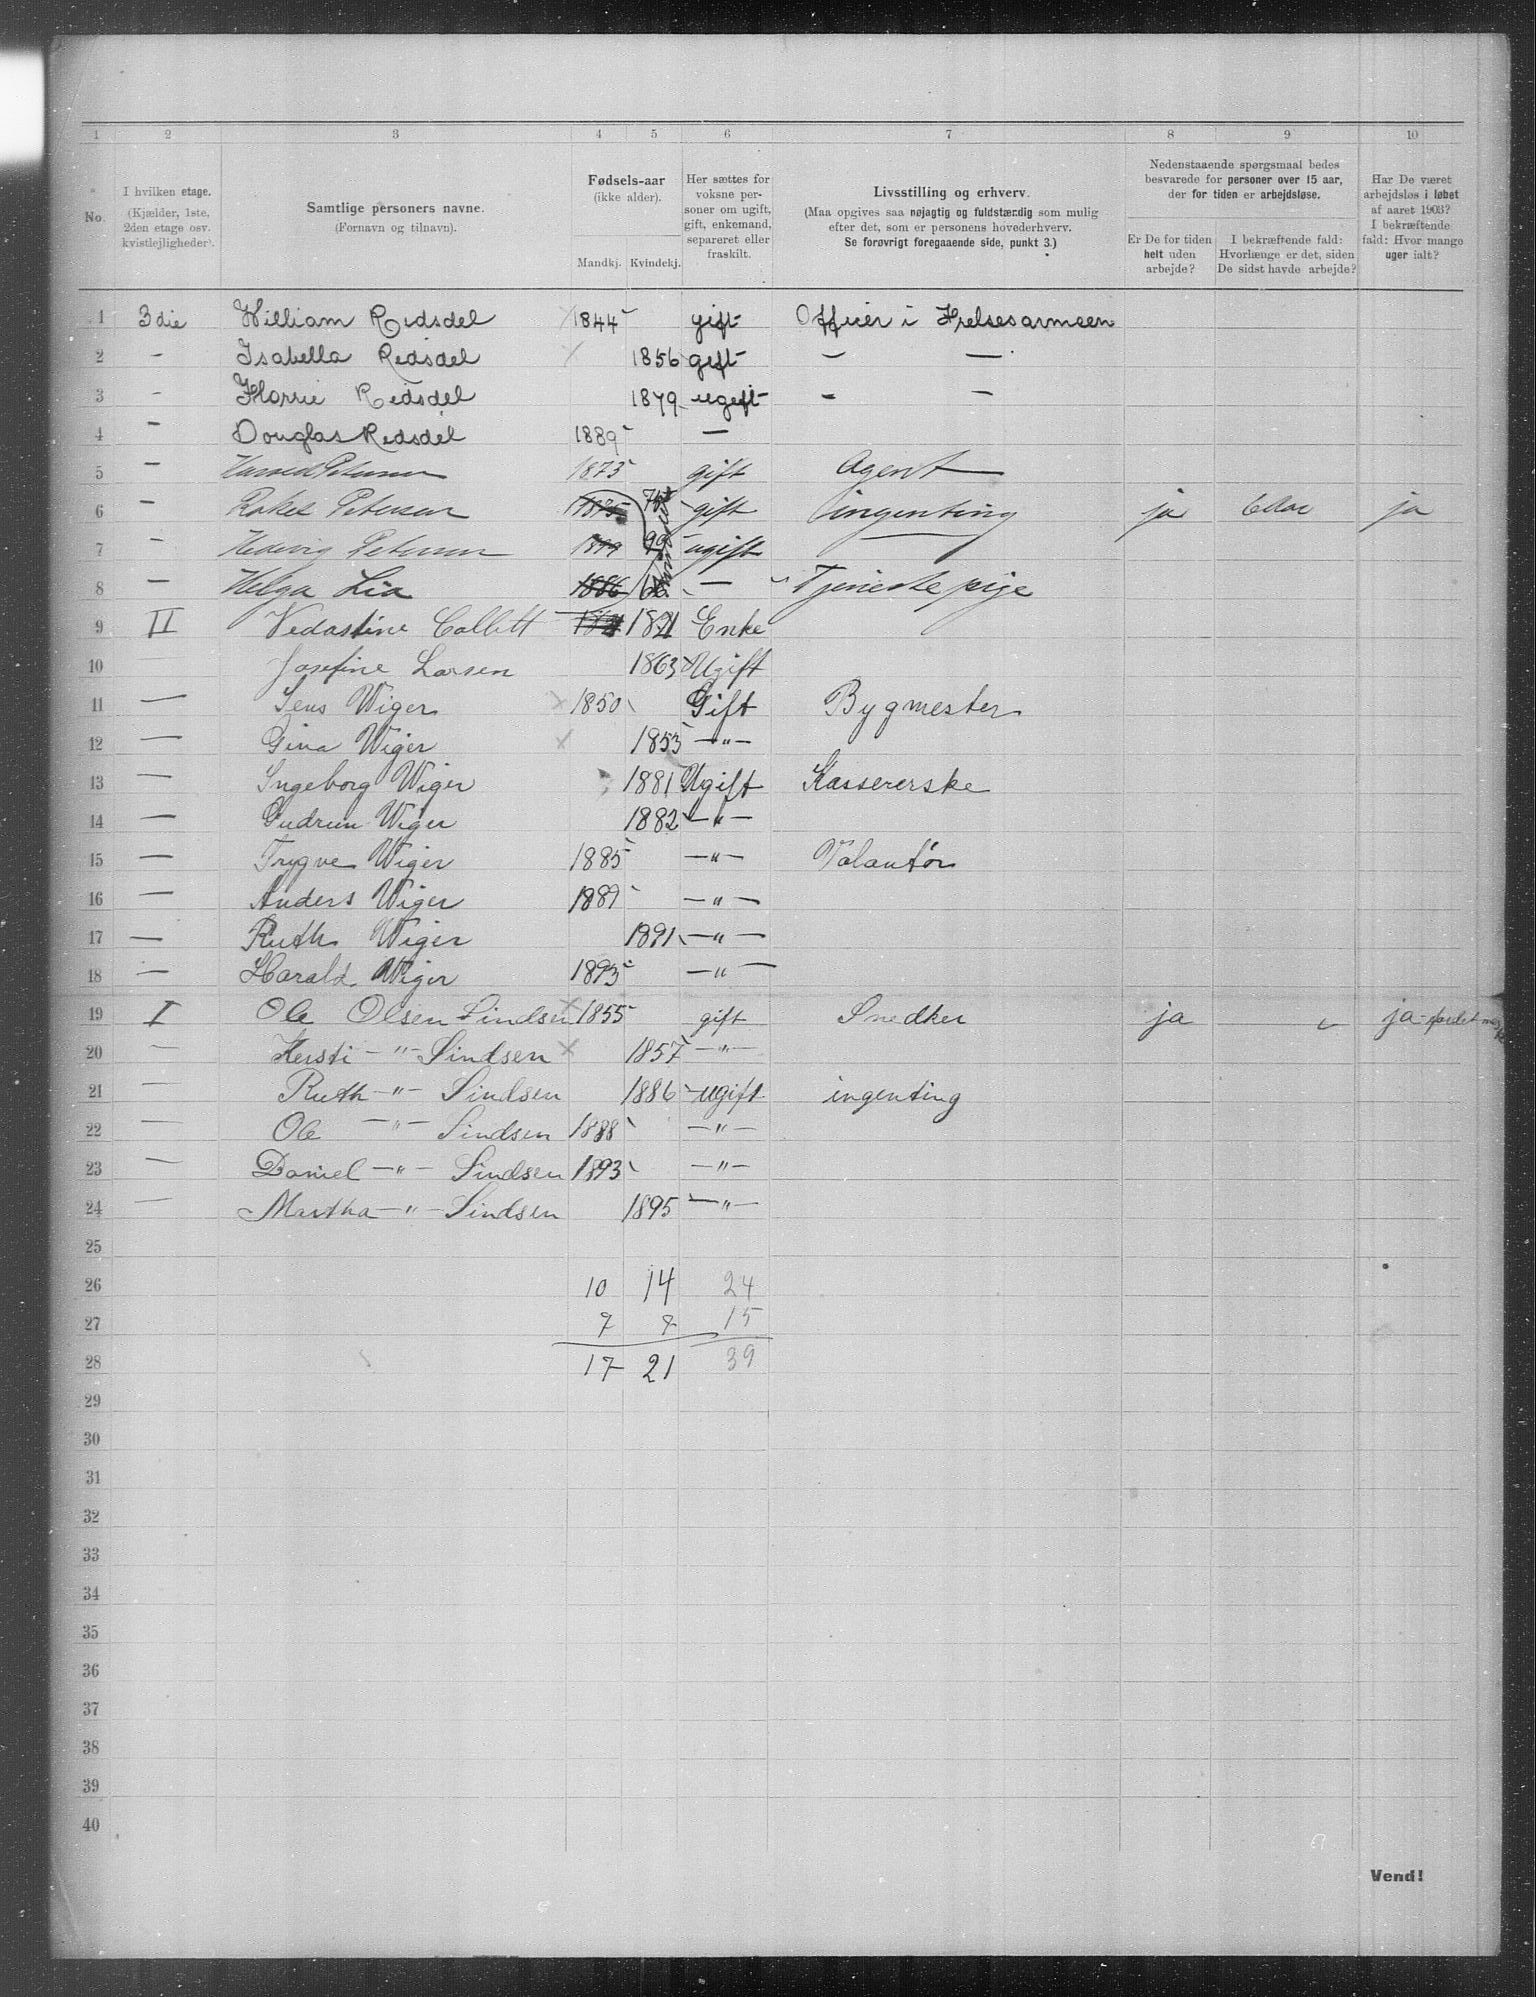 1 2 3 4 5 6 7 8 9 10
No.
I hvilken etage.
(Kjælder, 1ste,
2den etage osv.
kvistlejligheder).
Samtlige personers navne.
(Fornavn og tilnavn).
Fødsels-aar
(ikke alder).
Mandkj. Kvindekj.
Her sættes for
voksne per-
soner om ugift,
gift, enkemand,
separeret eller
fraskilt.
Livsstilling og erhverv.
(Maa opgives saa nøjagtig og fuldstændig som mulig
efter det, som er personens hovederhverv.
Se forøvrigt foregaaende side, punkt 3.)
Nedenstaaende spørgsmaal bedes
besvarede for personer over 15 aar,
der for tiden er arbejdsløse.
Er De for tiden
helt uden
arbejde?
I bekræftende fald:
Hvorlænge er det, siden
De sidst havde arbejde?
Har De været
arbejdsløs i løbet
af aaret 1903?
I bekræftende
fald: Hvor mange
uger ialt?
1 3die William Redsdel 1844 gift Officer i Frelsesarmeen
2 - Isabella Redsdel 1856 gift — —
3 - Florrie Redsdel 1879 ugift - —
4 - Douglas Redsdel 1889 —
5 - Petersen 1873 gift Agent
6 - Petersen 1875 75 gift ingenting ja ja
7 - Hedvig Petersen 1899 99 ugift
8 - Helga Lia 1886 — Tjenestepige
9 II Vedastine Collett 1821 Enke
10 Josefine Larsen 1863 Ugift
11 — Jens Wiger 1850 Gift Bygmester
12 — Gina Wiger 1853 —"—
13 — Ingeborg Wiger 1881 Ugift Kassererske
14 — Gudrun Wiger 1882 —"—
15 — Trygve Wiger 1885 —"— Volantør
16 — Anders Wiger 1889 —"—
17 — Ruth Wiger 1891 —"—
18 — Harald Wiger 1893 —"—
19 I Ole Olsen Lindsen 1855 gift Snedker ja ja
20 — Kersti —"— Sindsen 1857 —"—
21 — Ruth —"— Sindsen 1886 ugift ingenting
22 — Ole —"— Sindsen 1888 —"—
23 — Daniel —"— Sindsen 1893 —"—
24 — Martha —"— Sindsen 1895 —"—
25
26 10 14 24
27 7 7 15
28 17 21 39
29
30
31
32
33
34
35
36
37
38
39
40
Vend!